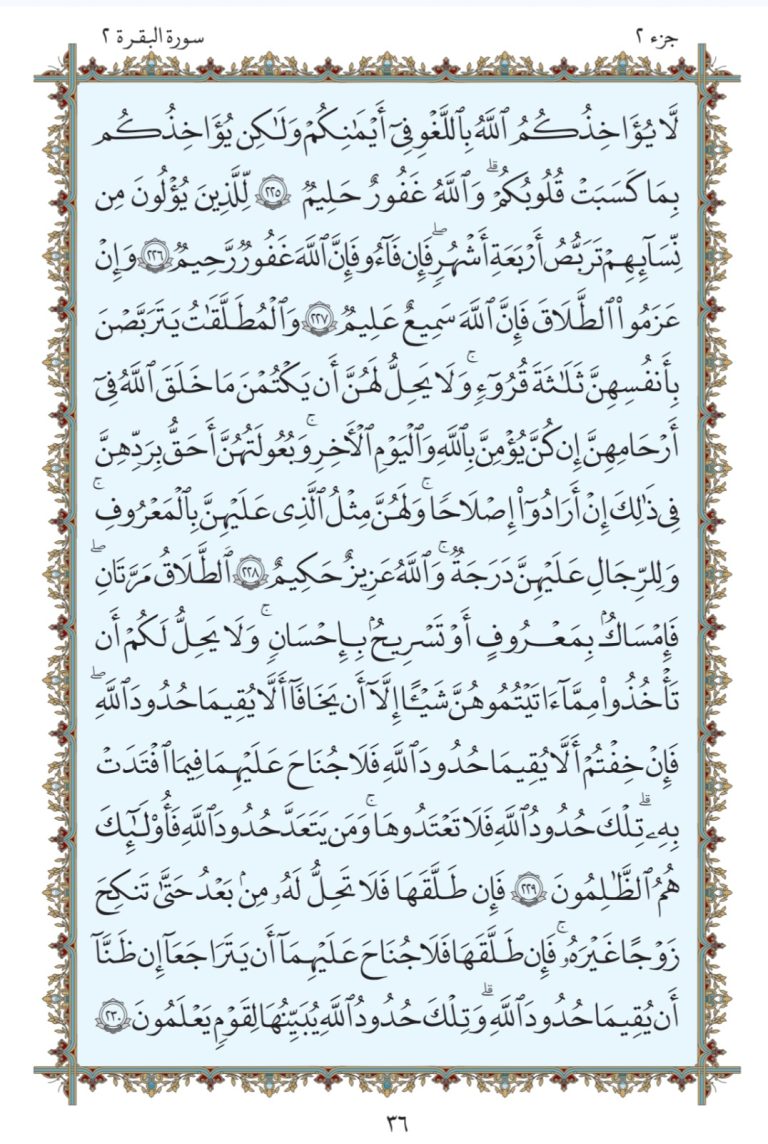 جزء ٢
سورة البقرة ٢
لَّا يُؤَاخِذُكُمُ ٱللَّهُ بِٱللَّغْوِ فِىٓ أَيْمَٰنِكُمْ وَلَٰكِن يُؤَاخِذُكُم
بِمَا كَسَبَتْ قُلُوبُكُمْ ۗ وَٱللَّهُ غَفُورٌ حَلِيمٌ ٢٢٥ لِّلَّذِينَ يُؤْلُونَ مِن
نِّسَآئِهِمْ تَرَبُّصُ أَرْبَعَةِ أَشْهُرٍ ۖ فَإِن فَآءُو فَإِنَّ ٱللَّهَ غَفُورٌ رَّحِيمٌ ٢٢٦ وَإِنْ
عَزَمُوا۟ ٱلطَّلَٰقَ فَإِنَّ ٱللَّهَ سَمِيعٌ عَلِيمٌ ٢٢٧ وَٱلْمُطَلَّقَٰتُ يَتَرَبَّصْنَ
بِأَنفُسِهِنَّ ثَلَٰثَةَ قُرُوٓءٍ ۚ وَلَا يَحِلُّ لَهُنَّ أَن يَكْتُمْنَ مَا خَلَقَ ٱللَّهُ فِىٓ
أَرْحَامِهِنَّ إِن كُنَّ يُؤْمِنَّ بِٱللَّهِ وَٱلْيَوْمِ ٱلْأَخِرِ ۚ وَبُعُولَتُهُنَّ أَحَقُّ بِرَدِّهِنَّ
فِى ذَٰلِكَ إِنْ أَرَادُوٓا۟ إِصْلَٰحًا ۚ وَلَهُنَّ مِثْلُ ٱلَّذِى عَلَيْهِنَّ بِٱلْمَعْرُوفِ ۚ
وَلِلرِّجَالِ عَلَيْهِنَّ دَرَجَةٌ ۗ وَٱللَّهُ عَزِيزٌ حَكِيمٌ ٢٢٨ ٱلطَّلَٰقُ مَرَّتَانِ ۖ
فَإِمْسَاكٌۢ بِمَعْرُوفٍ أَوْ تَسْرِيحٌۢ بِإِحْسَٰنٍ ۗ وَلَا يَحِلُّ لَكُمْ أَن
تَأْخُذُوا۟ مِمَّآ ءَاتَيْتُمُوهُنَّ شَيْـًٔا إِلَّآ أَن يَخَافَآ أَلَّا يُقِيمَا حُدُودَ ٱللَّهِ ۖ
فَإِنْ خِفْتُمْ أَلَّا يُقِيمَا حُدُودَ ٱللَّهِ فَلَا جُنَاحَ عَلَيْهِمَا فِيمَا ٱفْتَدَتْ
بِهِۦ ۗ تِلْكَ حُدُودُ ٱللَّهِ فَلَا تَعْتَدُوهَا ۚ وَمَن يَتَعَدَّ حُدُودَ ٱللَّهِ فَأُو۟لَٰٓئِكَ
هُمُ ٱلظَّٰلِمُونَ ٢٢٩ فَإِن طَلَّقَهَا فَلَا تَحِلُّ لَهُۥ مِنۢ بَعْدُ حَتَّىٰ تَنكِحَ
زَوْجًا غَيْرَهُۥ ۗ فَإِن طَلَّقَهَا فَلَا جُنَاحَ عَلَيْهِمَآ أَن يَتَرَاجَعَآ إِن ظَنَّآ
أَن يُقِيمَا حُدُودَ ٱللَّهِ ۗ وَتِلْكَ حُدُودُ ٱللَّهِ يُبَيِّنُهَا لِقَوْمٍ يَعْلَمُونَ ٢٣٠
٣٦